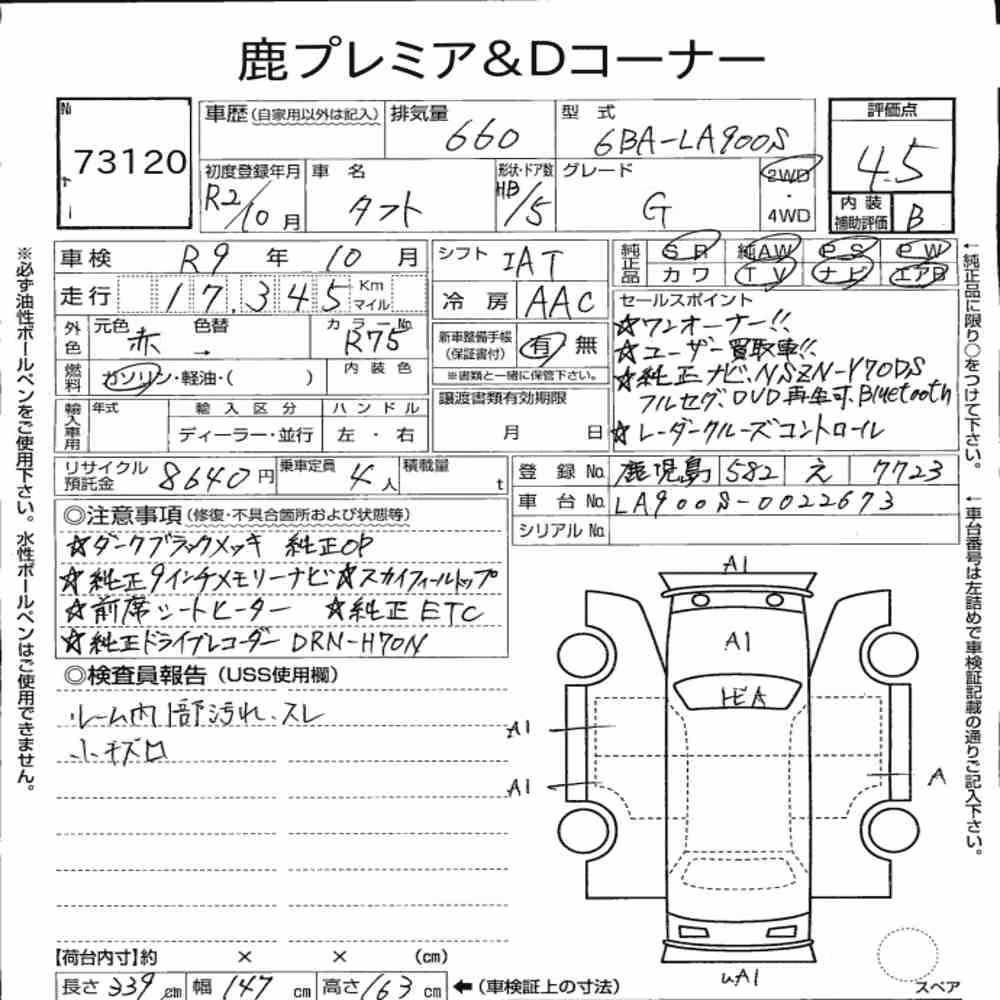 鹿プレミア&Dコーナー
№ 73120
車歴(自家用以外は記入) 排気量 660 型式 6BA-LA900S
評価点 4.5
初度登録年月 R2/10月 車名 タフト 形状・ドア数 HB/5 グレード G 2WD・4WD
内装補助評価 B
車検 R9年 10月 シフト IAT
純正品 SR 純AW PS PW
カワ TV ナビ エアB
走行 17,345 Km マイル 冷房 AAC
外色 元色 赤 色替 → カラーNo. R75
新車整備手帳(保証書付) 有 無
※書類と一緒に保管下さい。
燃料 ガソリン・軽油・( ) 内装色
輸入車用 年式 輸入区分 ディーラー・並行 ハンドル 左・右
譲渡書類有効期限 月 日
セールスポイント
☆ワンオーナー!!
☆ユーザー買取車!!
☆純正ナビ、NSZN-Y70DS
フルセグ、DVD再生可、Bluetooth
☆レーダークルーズコントロール
リサイクル預託金 8640円 乗車定員 4人 積載量 t
登録No. 鹿児島 582 え 7723
車台No. LA900S-0022673
シリアルNo.
◎注意事項(修復・不具合箇所および状態等)
☆ダークブラックメッキ 純正OP
☆純正9インチメモリーナビ☆スカイフィールトップ
☆前席シートヒーター ☆純正ETC
☆純正ドライブレコーダー DRN-H70N
◎検査員報告(USS使用欄)
ルーム内1部汚れ、スレ
小キズロ
A1
A1
A1
A1
A
UA1
スペア
【荷台内寸】約 × × (cm)
長さ 339 cm 幅 147 cm 高さ 163 cm ←(車検証上の寸法)
※必ず油性ボールペンをご使用下さい。水性ボールペンはご使用できません。
←純正品に限り○をつけて下さい。
←車台番号は左詰めで車検証記載の通りご記入下さい。